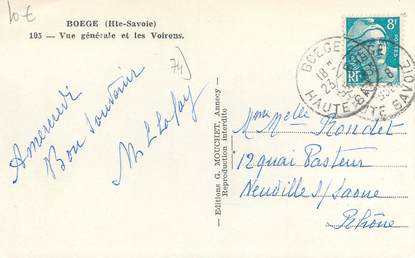 10 €
BOEGE (Hte-Savoie)
105 - Vue générale et les Voirons.
74
Bon Souvenir
M L
Editions G. MOUCHET, Annecy
Reproduction interdite
8F
RF
BOEGE
18
HAUTE-SAVOIE
Mme Melle Rondet
12 quai Pasteur
Neuville s/Saone
Rhône